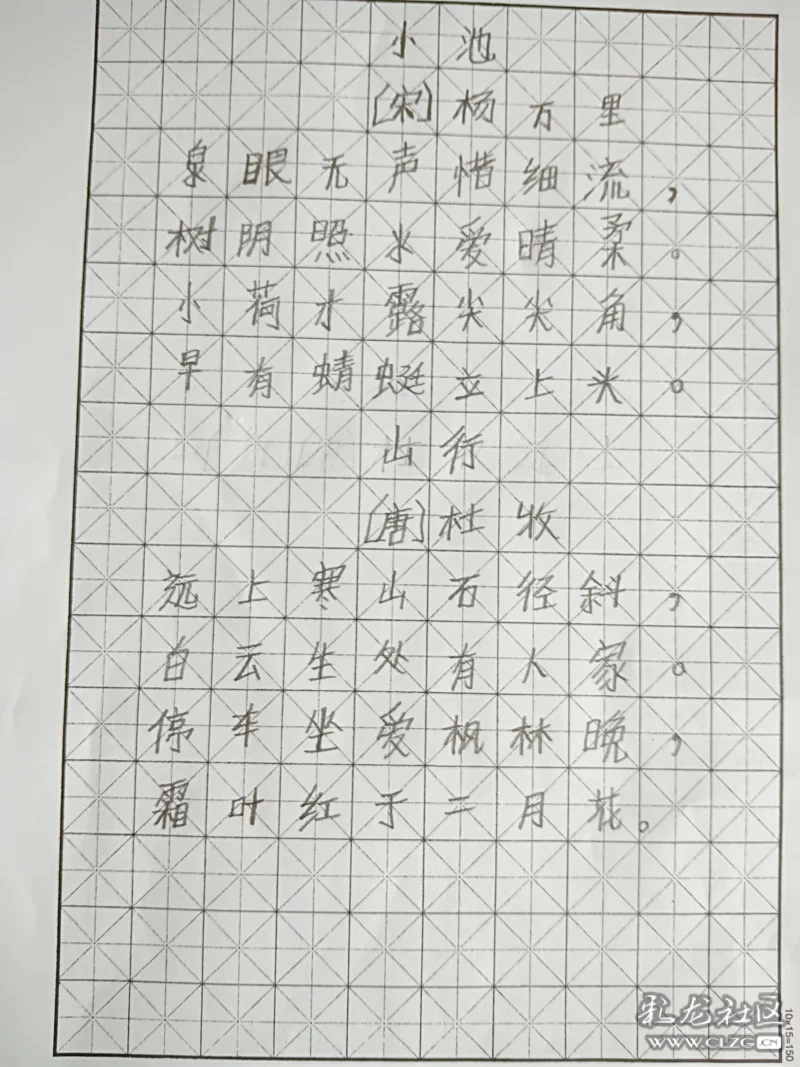 小池
[宋]杨万里
泉眼无声惜细流，
树阴照水爱晴柔。
小荷才露尖尖角，
早有蜻蜓立上头。
山行
[唐]杜牧
远上寒山石径斜，
白云生处有人家。
停车坐爱枫林晚，
霜叶红于二月花。
10×15=150
乳龙社区
WWW.CLZG.CN